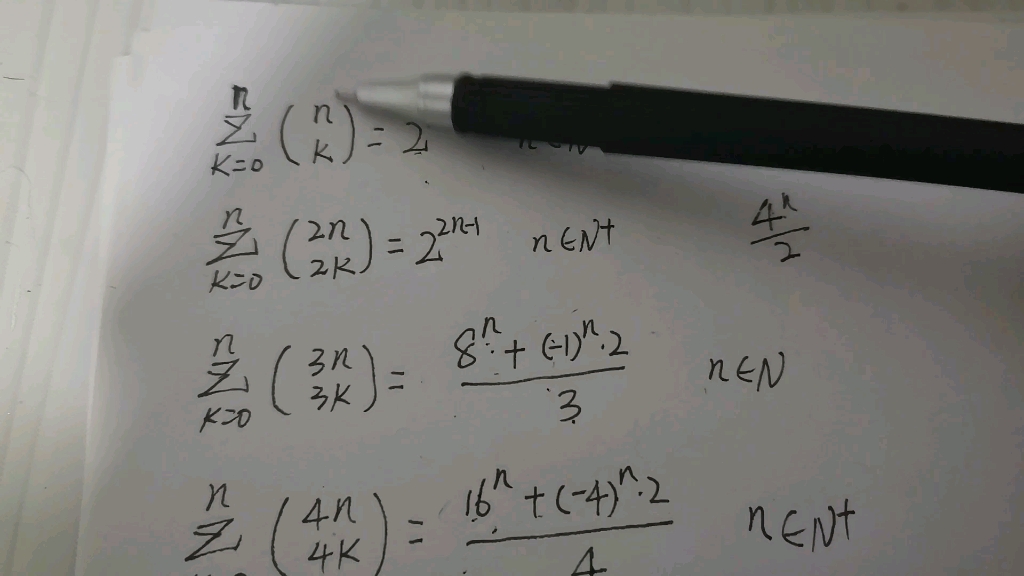 n
Σ (n k) = 2
K=0
n
Σ (2n 2k) = 2^{2n-1} n∈N+ 4^n/2
K=0
n
Σ (3n 3k) = (8^n + (-1)^n·2)/3 n∈N
K=0
n
Σ (4n 4k) = (16^n + (-4)^n·2)/4 n∈N+